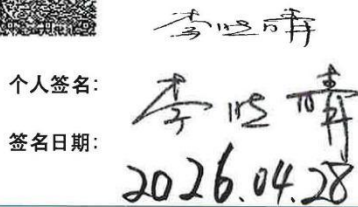 李晓
个人签名: 李晓
签名日期: 2026.04.28